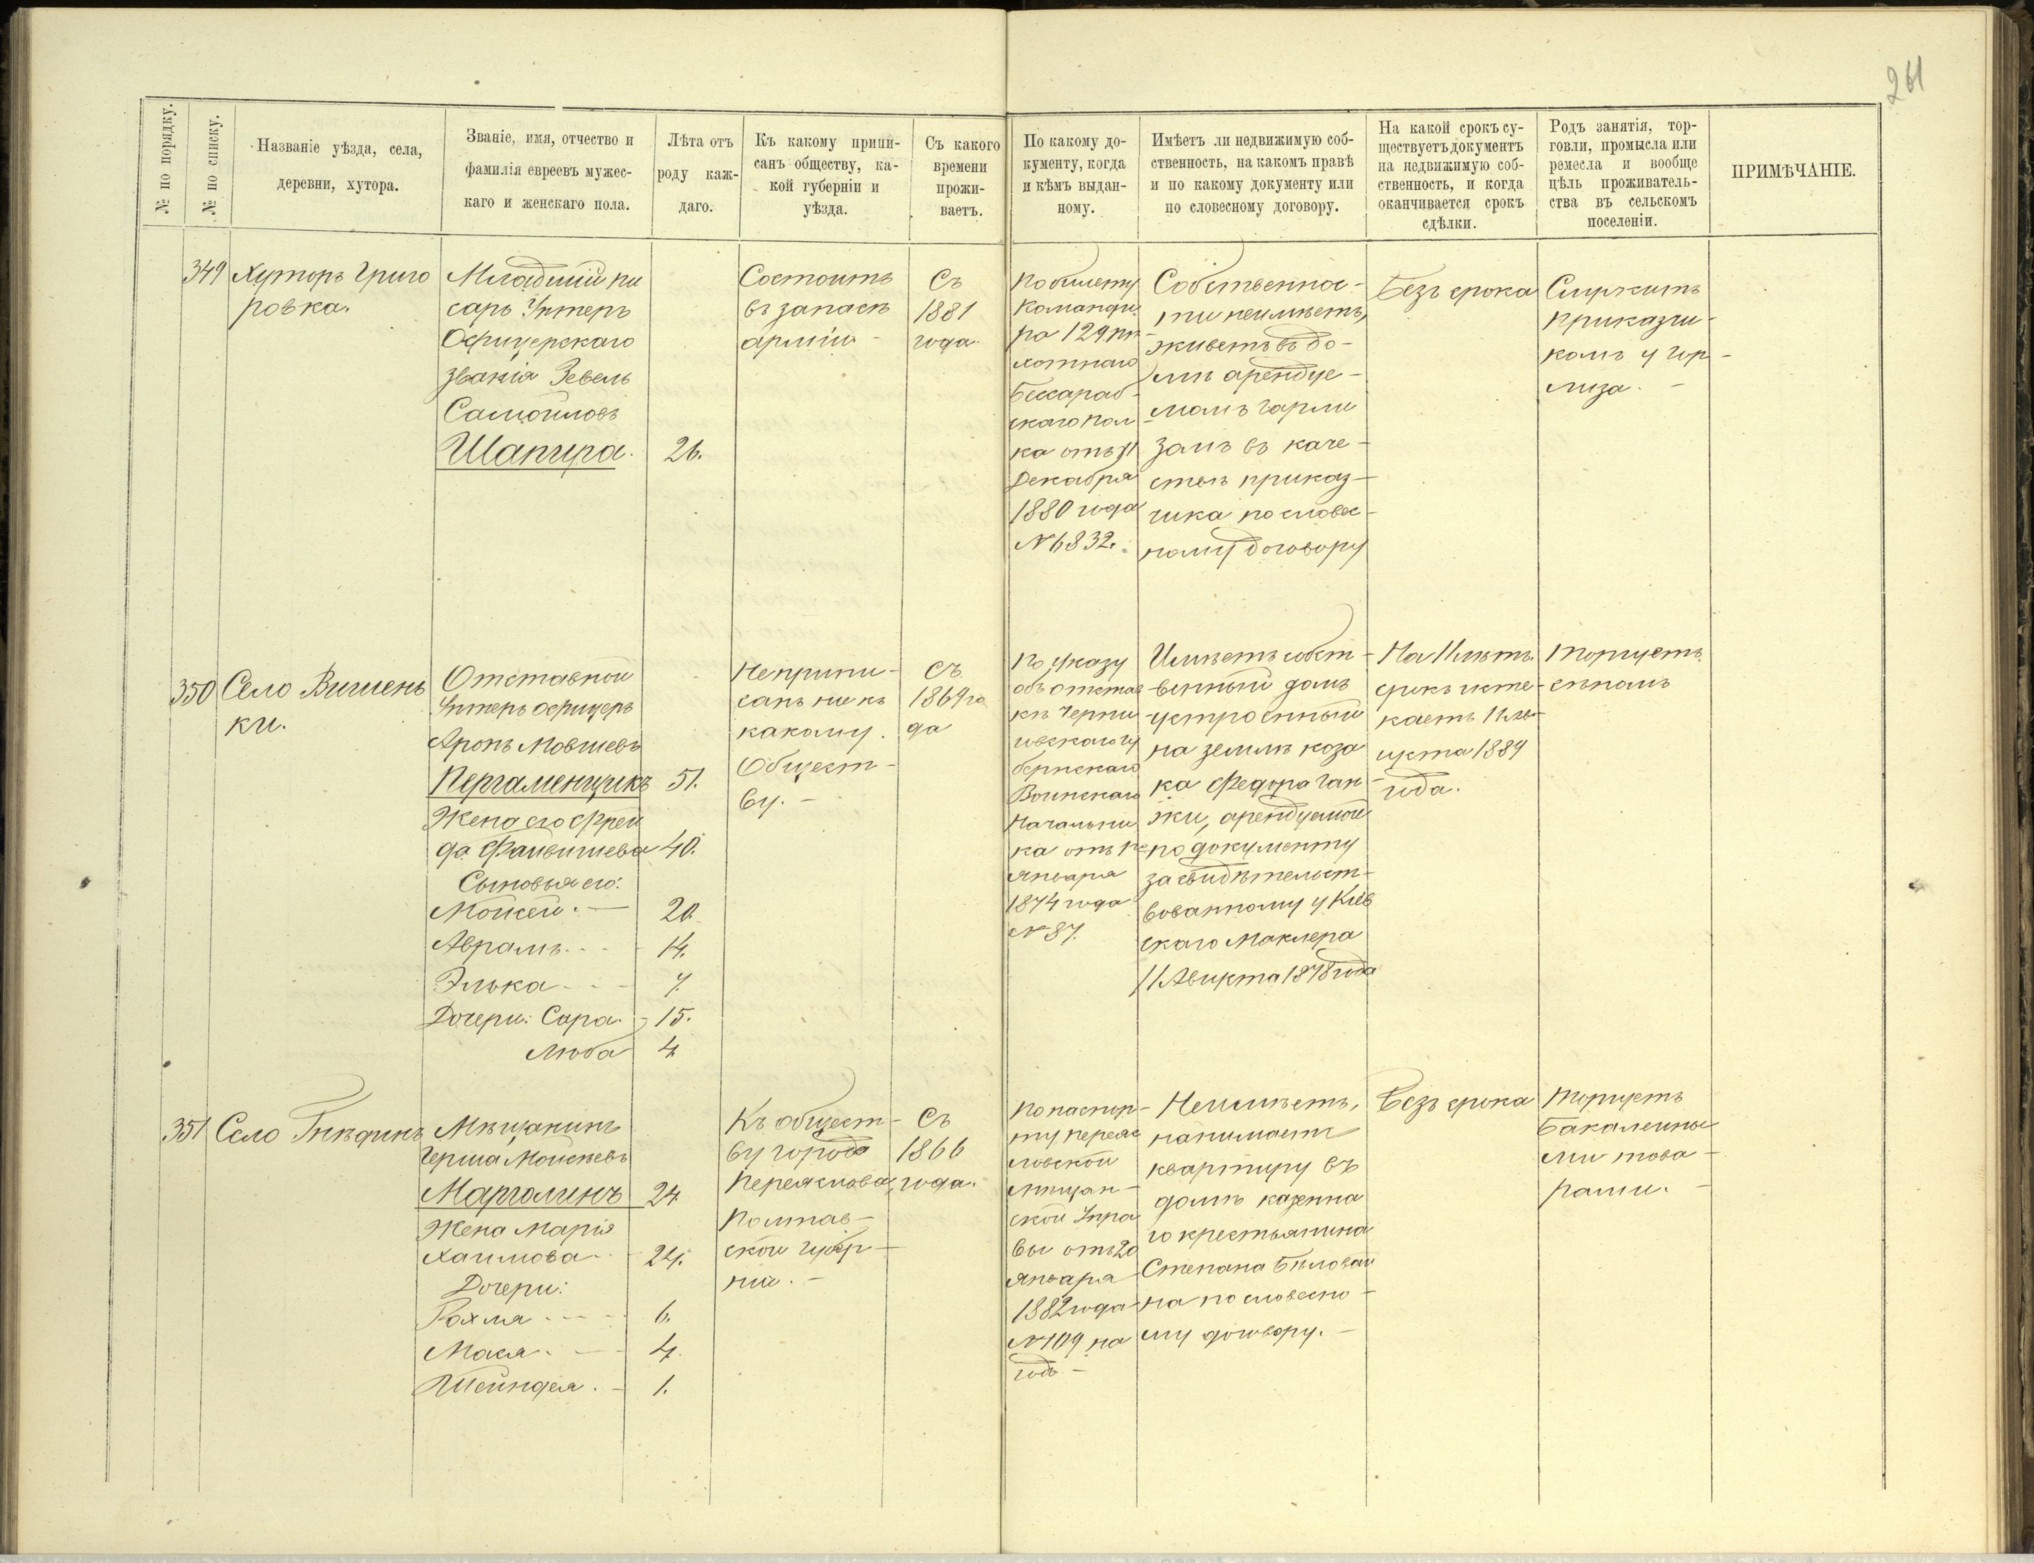 261
№ по порядку.
№ по списку.
Названіе уѣзда, села,
деревни, хутора.
Званіе, имя, отчество и
фамилія евреевъ мужес-
каго и женскаго пола.
Лѣта отъ
роду каж-
даго.
Къ какому припи-
санъ обществу, ка-
кой губерніи и
уѣзда.
Съ какого
времени
прожи-
ваетъ.
По какому до-
кументу, когда
и кѣмъ выдан-
ному.
Имѣетъ ли недвижимую соб-
ственность, на какомъ правѣ
и по какому документу или
по словесному договору.
На какой срокъ су-
ществуетъ документъ
на недвижимую соб-
ственность, и когда
оканчивается срокъ
сдѣлки.
Родъ занятія, тор-
говли, промысла или
ремесла и вообще
цѣль проживатель-
ства въ сельскомъ
поселеніи.
ПРИМѢЧАНІЕ.
349
Хуторъ Григо
ровка.
Младшій пи
сарь Унтеръ
Офицерскаго
званія Зевель
Самойловъ
Шапира.
26.
Состоитъ
въ запасѣ
арміи
Съ
1881
года
По билету
Команди
ра 129 пѣ
хотнаго
Бессараб-
скаго пол
ка отъ 31
Декабря
1880 года
№ 6832.
Собственнос-
ти неимѣетъ,
живетъ въ до-
мѣ арендуе-
момъ Горли
зомъ въ каче-
ствѣ приказ-
чика по словес-
ному договору
Безъ срока
Служитъ
приказчи-
комъ у Гор-
лиза.
350
Село Вишень
ки.
Отставной
Унтеръ офицеръ
Аронъ Мовшевъ
Пергаменщикъ
51.
Жена его Фрей
да Файвишева
40.
Сыновья его:
Мойсей.
20
Абрамъ
14.
Элька
7
Дочери: Сара
15.
Люба
4
Неприпи-
санъ ни къ
какому
Общест-
ву.
Съ
1869 го
да
По указу
объ отстав
кѣ Черни
говскаго гу
бернскаго
Воинскаго
Начальни
ка отъ
Января
1874 года
№ 87.
Имѣетъ собст-
венный домъ
устроенный
на землѣ коза
ка Федора Ган-
жи, арендуемой
по документу
засвидѣтельст-
вованному у Кіев
скаго Маклера
11 Августа 1878 года
На 11 лѣтъ.
срокъ исте-
каетъ 11 Ав-
густа 1889
года.
Торгуетъ
сѣномъ
351
Село Гнѣдинъ
Мѣщанинъ
Герша Мойсеевъ
Марголинъ
24
Жена Марія
Хаимова
24.
Дочери:
Рохля
6.
Мася
4.
Шейндля.
1.
Къ общест-
ву города
Переяслова,
Полтав-
ской губер-
ніи.
Съ
1866
года.
По паспор-
ту Переяс
ловской
мѣщан-
ской Упра
вы отъ 20
Января
1882 года
№ 109 на
годъ
Неимѣетъ,
нанимаетъ
квартиру въ
домѣ казенна
го крестьянина
Степана Бѣловай
на по словесно-
му договору.
Безъ срока
Торгуетъ
Бакалейны
ми това-
рами.